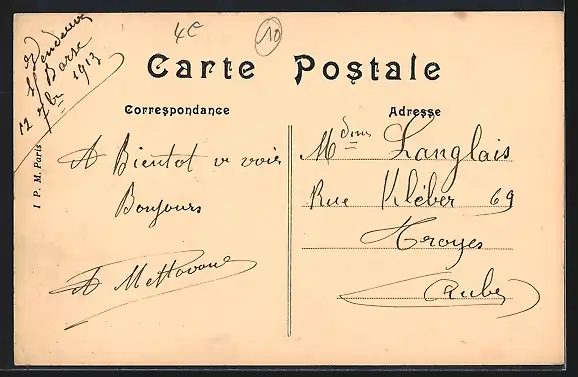 4€
10
Vendeuvre
s/ Barse
12 7bre 1913
Carte Postale
Correspondance
Adresse
I P. M. Paris
A Bientot v voir
Bonjours
Mdme Langlais
Rue Kléber 69
Troyes
Aube